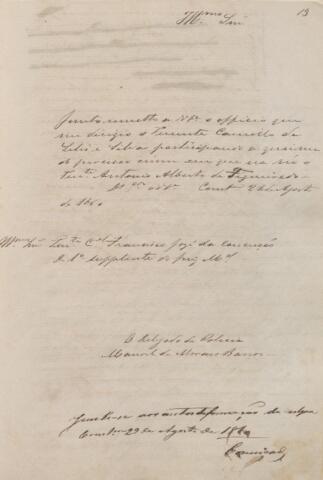 13
Illmo. Snr.
Junto remetto a VSa. o officio que
me dirigio o Tenente Camillo de
Lelis e Silva participando a
do processo crime em que na rio o
tente. Antonio Alberto de Figueiredo
Ds. gde. a VSa. Const. 28 de Agosto
de 186
Illmo. Snr. Tente. Cel. Francisco José da Conceição
D. 1º supplente do juiz Mal.
O Delegado de Policia
Manoel de Moraes Barros
Junte-se aos autos de formação de culpa
Constm. 29 de Agosto de
Conceição